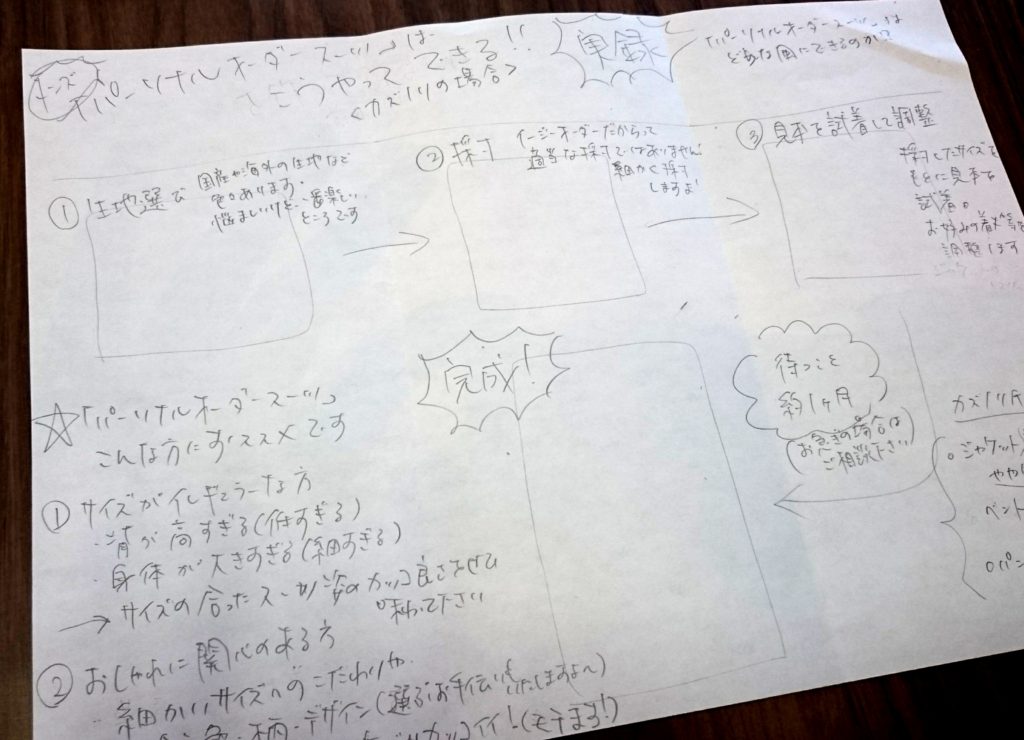 メンズ
「パーソナルオーダースーツ」は
どうやってできる!!
<カズノリの場合>
実録
「パーソナルオーダースーツ」は
どんな風にできるのか!?
① 生地選び
国産や海外の生地など
色々あります。
悩ましいけど、一番楽しい
ところです
② 採寸
イージーオーダーだからって
適当な採寸ではありません!
細かく採寸
しますよ!
③ 見本を試着して調整
採寸したサイズを
もとに見本を
試着。
お好みの着丈等を
調整します
待つこと
約1ヶ月
(お急ぎの場合は
ご相談下さい)
完成!
カズノリ氏
○ジャケット
やや
ベント
○パン
☆「パーソナルオーダースーツ」
こんな方にオススメです
① サイズがイレギュラーな方
・背が高すぎる(低すぎる)
・身体が大きすぎる(細すぎる)
→ サイズの合ったスーツ姿のカッコ良さをぜひ
味わって下さい
② おしゃれに関心のある方
・細かいサイズへのこだわりや
色・柄・デザイン(選ぶお手伝いもいたしますよ〜)
カッコイイ!(モテます!)